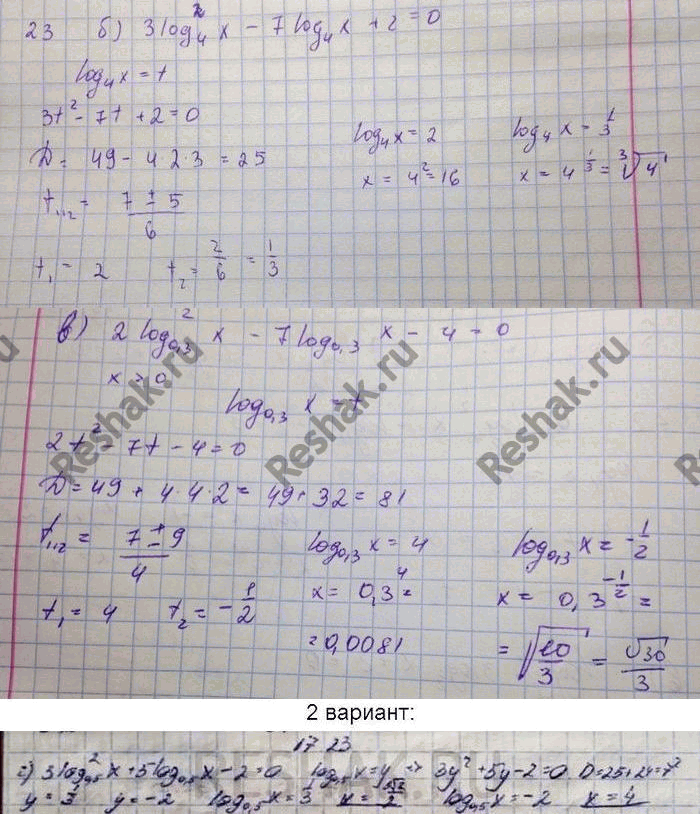 23 б) 3 log₄² x - 7 log₄ x + 2 = 0
log₄ x = t
3t² - 7t + 2 = 0
D = 49 - 4·2·3 = 25
t₁,₂ = (7 ± 5)/6
t₁ = 2 t₂ = 2/6 = 1/3
log₄ x = 2 log₄ x = 1/3
x = 4² = 16 x = 4^(1/3) = ∛4
в) 2 log₀,₃² x - 7 log₀,₃ x - 4 = 0
x > 0
log₀,₃ x = t
2t² - 7t - 4 = 0
D = 49 + 4·4·2 = 49 + 32 = 81
t₁,₂ = (7 ± 9)/4
t₁ = 4 t₂ = -1/2
log₀,₃ x = 4 log₀,₃ x = -1/2
x = 0,3⁴ = x = 0,3^(-1/2) =
= 0,0081 = √(10/3) = √30/3
Reshak.ru
Reshak.ru
Reshak.ru
2 вариант:
17 23
г) 3 log₀,₅² x + 5 log₀,₅ x - 2 = 0 log₀,₅ x = y => 3y² + 5y - 2 = 0 D = 25 + 24 = 7²
y = 1/3 y = -2 log₀,₅ x = 1/3 x = log₀,₅ x = -2 x = 4
RESHAK.RU